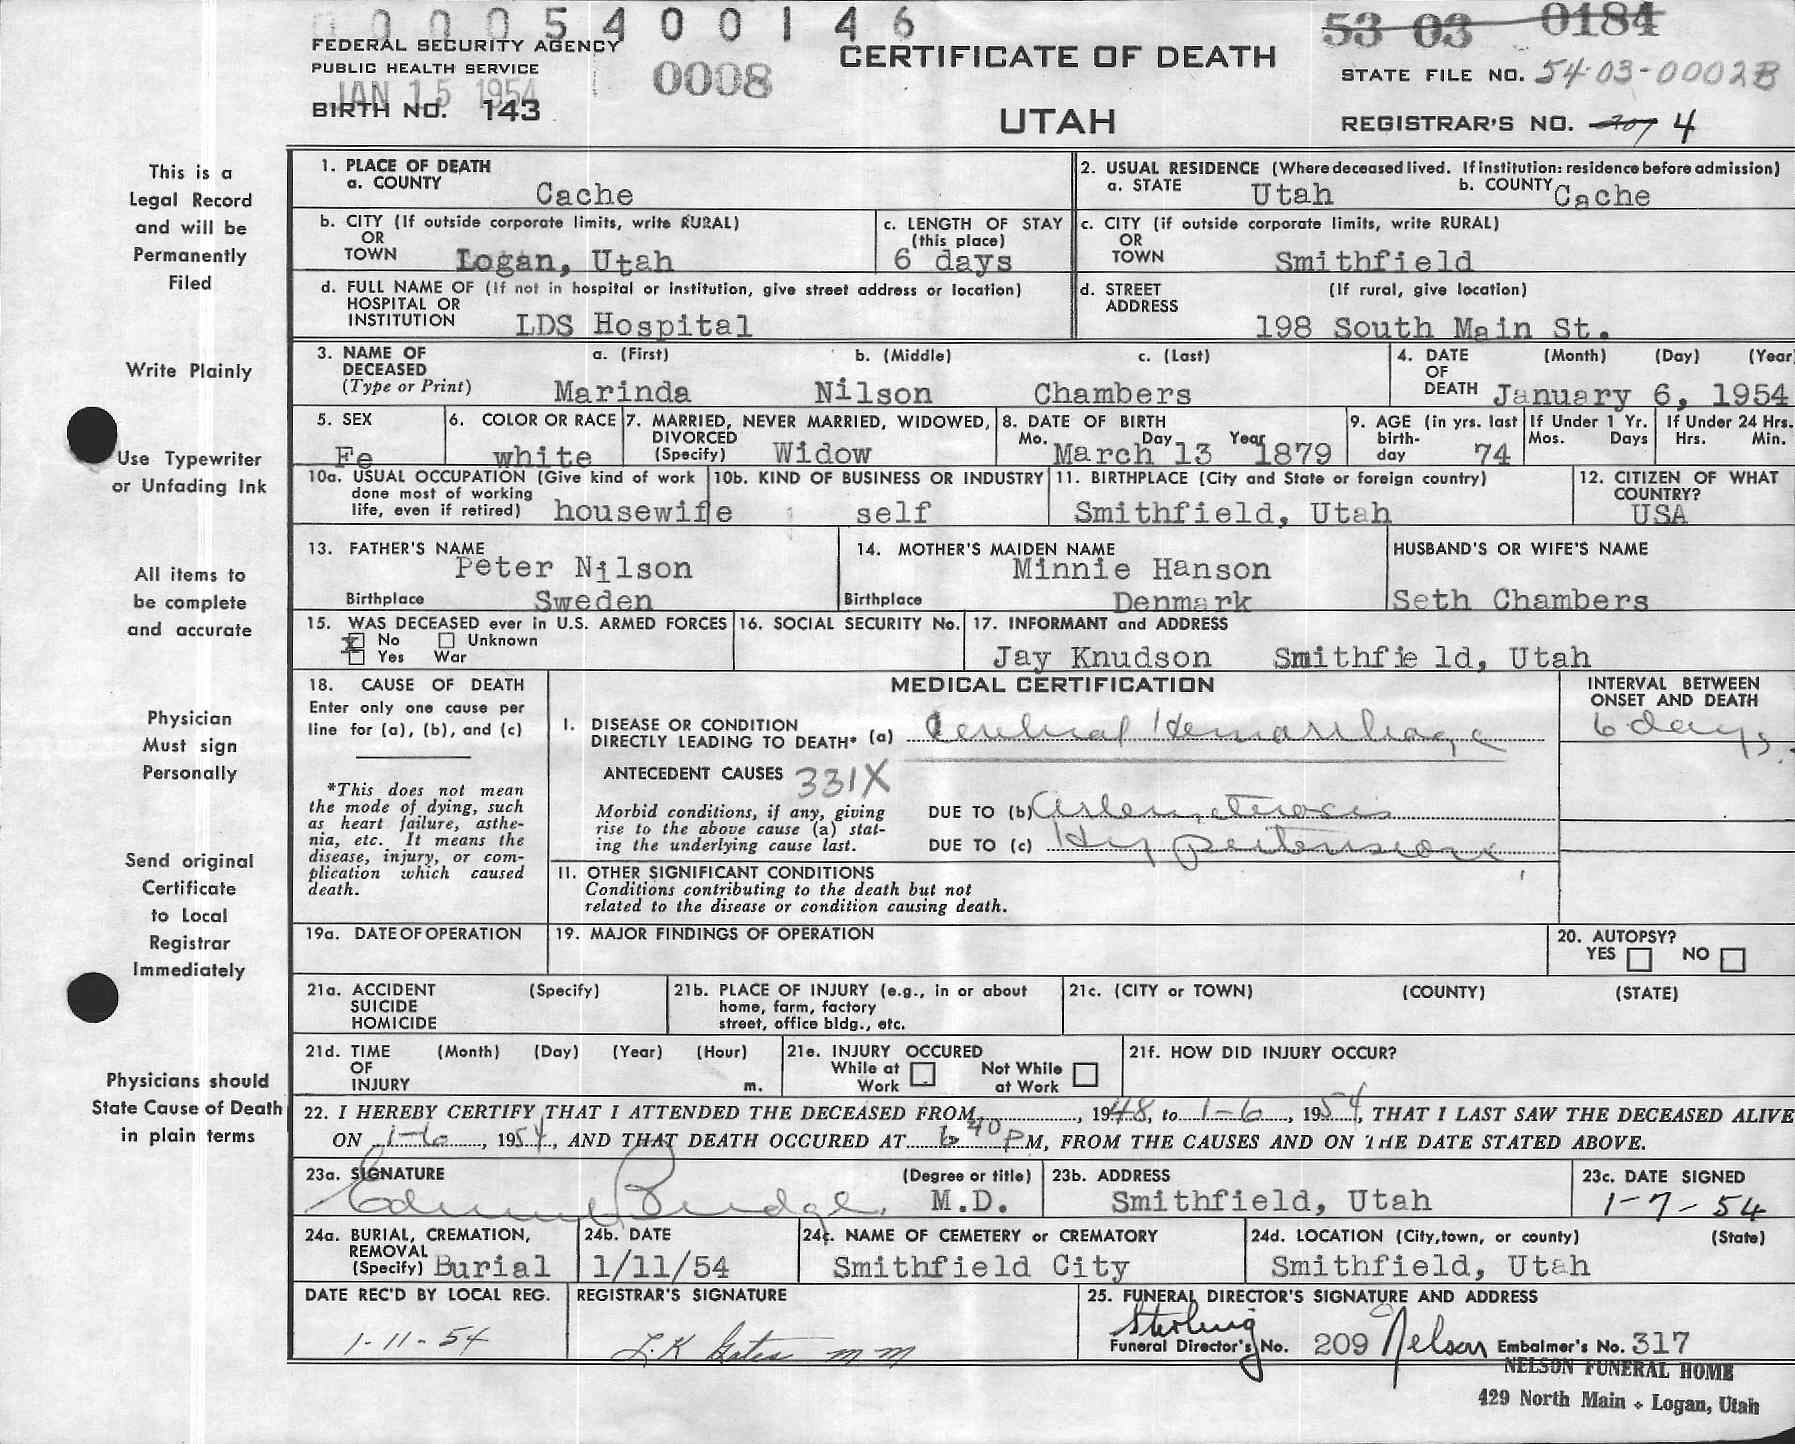 0 0 0 5 4 0 0 1 4 6
53 03 0184
FEDERAL SECURITY AGENCY
PUBLIC HEALTH SERVICE
JAN 15 1954
BIRTH NO. 143
0008
CERTIFICATE OF DEATH
UTAH
STATE FILE NO. 54-03-0002B
REGISTRAR'S NO. 207 4
This is a
Legal Record
and will be
Permanently
Filed
Write Plainly
Use Typewriter
or Unfading Ink
All items to
be complete
and accurate
Physician
Must sign
Personally
Send original
Certificate
to Local
Registrar
Immediately
Physicians should
State Cause of Death
in plain terms
1. PLACE OF DEATH
a. COUNTY Cache
2. USUAL RESIDENCE (Where deceased lived. If institution: residence before admission)
a. STATE Utah b. COUNTY Cache
b. CITY (If outside corporate limits, write RURAL)
OR
TOWN Logan, Utah
c. LENGTH OF STAY
(this place)
6 days
c. CITY (if outside corporate limits, write RURAL)
OR
TOWN Smithfield
d. FULL NAME OF (If not in hospital or institution, give street address or location)
HOSPITAL OR
INSTITUTION LDS Hospital
d. STREET (If rural, give location)
ADDRESS
198 South Main St.
3. NAME OF a. (First) b. (Middle) c. (Last)
DECEASED
(Type or Print) Marinda Nilson Chambers
4. DATE (Month) (Day) (Year
OF
DEATH January 6, 1954
5. SEX
Fe
6. COLOR OR RACE
white
7. MARRIED, NEVER MARRIED, WIDOWED,
DIVORCED
(Specify) Widow
8. DATE OF BIRTH
Mo. Day Year
March 13 1879
9. AGE (in yrs. last
birth-
day 74
If Under 1 Yr.
Mos. Days
If Under 24 Hrs.
Hrs. Min.
10a. USUAL OCCUPATION (Give kind of work
done most of working
life, even if retired) housewife
10b. KIND OF BUSINESS OR INDUSTRY
self
11. BIRTHPLACE (City and State or foreign country)
Smithfield, Utah
12. CITIZEN OF WHAT
COUNTRY?
USA
13. FATHER'S NAME
Peter Nilson
Birthplace Sweden
14. MOTHER'S MAIDEN NAME
Minnie Hanson
Birthplace Denmark
HUSBAND'S OR WIFE'S NAME
Seth Chambers
15. WAS DECEASED ever in U.S. ARMED FORCES
x No Unknown
Yes War
16. SOCIAL SECURITY No.
17. INFORMANT and ADDRESS
Jay Knudson Smithfie ld, Utah
18. CAUSE OF DEATH
Enter only one cause per
line for (a), (b), and (c)
*This does not mean
the mode of dying, such
as heart failure, asthe-
nia, etc. It means the
disease, injury, or com-
plication which caused
death.
MEDICAL CERTIFICATION
INTERVAL BETWEEN
ONSET AND DEATH
I. DISEASE OR CONDITION
DIRECTLY LEADING TO DEATH* (a) Cerebral Hemorrhage
6 days.
ANTECEDENT CAUSES 331X
Morbid conditions, if any, giving
rise to the above cause (a) stat-
ing the underlying cause last.
DUE TO (b)
DUE TO (c) Hypertension
II. OTHER SIGNIFICANT CONDITIONS
Conditions contributing to the death but not
related to the disease or condition causing death.
19a. DATE OF OPERATION
19. MAJOR FINDINGS OF OPERATION
20. AUTOPSY?
YES NO
21a. ACCIDENT (Specify)
SUICIDE
HOMICIDE
21b. PLACE OF INJURY (e.g., in or about
home, farm, factory
street, office bldg., etc.
21c. (CITY or TOWN) (COUNTY) (STATE)
21d. TIME (Month) (Day) (Year) (Hour)
OF
INJURY m.
21e. INJURY OCCURED
While at Work
Not While at Work
21f. HOW DID INJURY OCCUR?
22. I HEREBY CERTIFY THAT I ATTENDED THE DECEASED FROM , 1948, to 1-6, 1954, THAT I LAST SAW THE DECEASED ALIVE
ON 1-6, 1954, AND THAT DEATH OCCURED AT 6 40 P M, FROM THE CAUSES AND ON THE DATE STATED ABOVE.
23a. SIGNATURE (Degree or title)
Budge. M.D.
23b. ADDRESS
Smithfield, Utah
23c. DATE SIGNED
1-7-54
24a. BURIAL, CREMATION,
REMOVAL
(Specify) Burial
24b. DATE
1/11/54
24c. NAME OF CEMETERY or CREMATORY
Smithfield City
24d. LOCATION (City, town, or county) (State)
Smithfield, Utah
DATE REC'D BY LOCAL REG.
1-11-54
REGISTRAR'S SIGNATURE
L.K Gates m m
25. FUNERAL DIRECTOR'S SIGNATURE AND ADDRESS
Sterling Nelson
Funeral Director's No. 209 Embalmer's No. 317
NELSON FUNERAL HOME
429 North Main - Logan, Utah